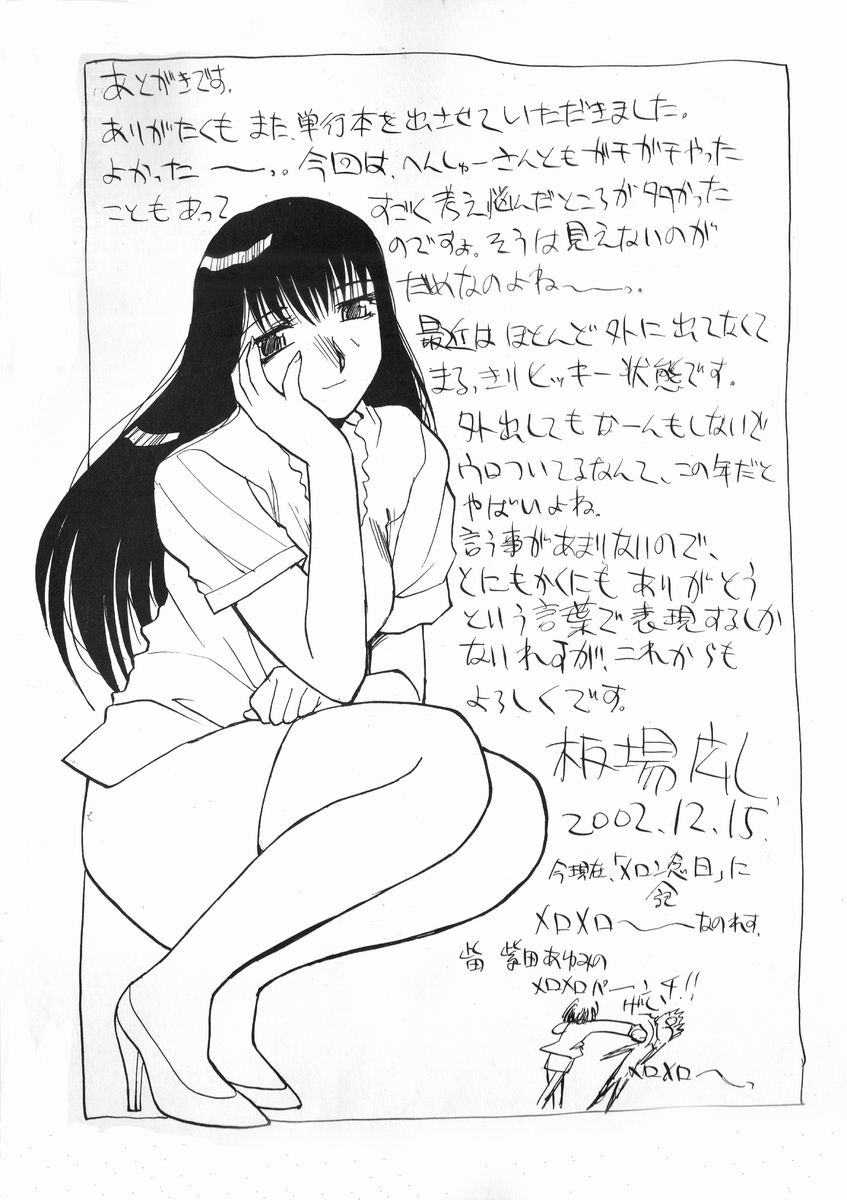 あとがきです.
ありがたくも また、単行本を出させていただきました。
よかった ー〜っ。今回は、へんしゅーさんともガチガチやった
こともあって すごく考え悩んだところが多かった
のですよ。そうは見えないのが
だめなのよね〜ーっ.
最近は ほとんど外に出てなくて
まるっきりヒッキー状態です。
外出しても なーんもしないで
ウロついてるなんて、この年だと
やばいよね.
言う事があまりないので、
とにもかくにも ありがとう
という言葉で表現するしか
ないれすが、これからも
よろしくです。
板場広し
2002.12.15.
今現在、「メロン念日」に
記
メロメロ〜ーなのれす.
柴田あゆみの
メロメロパーンチ!!
メロメロ〜っ